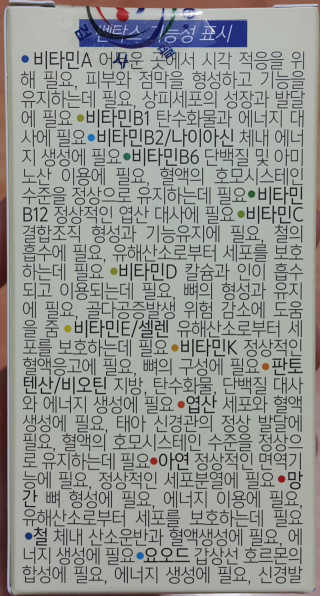 쎈탁스 기능성 표시
•비타민A 어두운 곳에서 시각 적응을 위
해 필요, 피부와 점막을 형성하고 기능을
유지하는데 필요, 상피세포의 성장과 발달
에 필요•비타민B1 탄수화물과 에너지 대
사에 필요•비타민B2/나이아신 체내 에너
지 생성에 필요•비타민B6 단백질 및 아미
노산 이용에 필요, 혈액의 호모시스테인
수준을 정상으로 유지하는데 필요•비타민
B12 정상적인 엽산 대사에 필요•비타민C
결합조직 형성과 기능유지에 필요, 철의
흡수에 필요, 유해산소로부터 세포를 보호
하는데 필요 •비타민D 칼슘과 인이 흡수
되고 이용되는데 필요, 뼈의 형성과 유지
에 필요, 골다공증발생 위험 감소에 도움
을 줌 •비타민E/셀렌 유해산소로부터 세
포를 보호하는데 필요•비타민K 정상적인
혈액응고에 필요, 뼈의 구성에 필요•판토
텐산/비오틴 지방, 탄수화물, 단백질 대사
와 에너지 생성에 필요•엽산 세포와 혈액
생성에 필요, 태아 신경관의 정상 발달에
필요, 혈액의 호모시스테인 수준을 정상으
로 유지하는데 필요•아연 정상적인 면역기
능에 필요, 정상적인 세포분열에 필요•망
간 뼈 형성에 필요, 에너지 이용에 필요,
유해산소로부터 세포를 보호하는데 필요
•철 체내 산소운반과 혈액생성에 필요, 에
너지 생성에 필요•요오드 갑상선 호르몬의
합성에 필요, 에너지 생성에 필요, 신경발